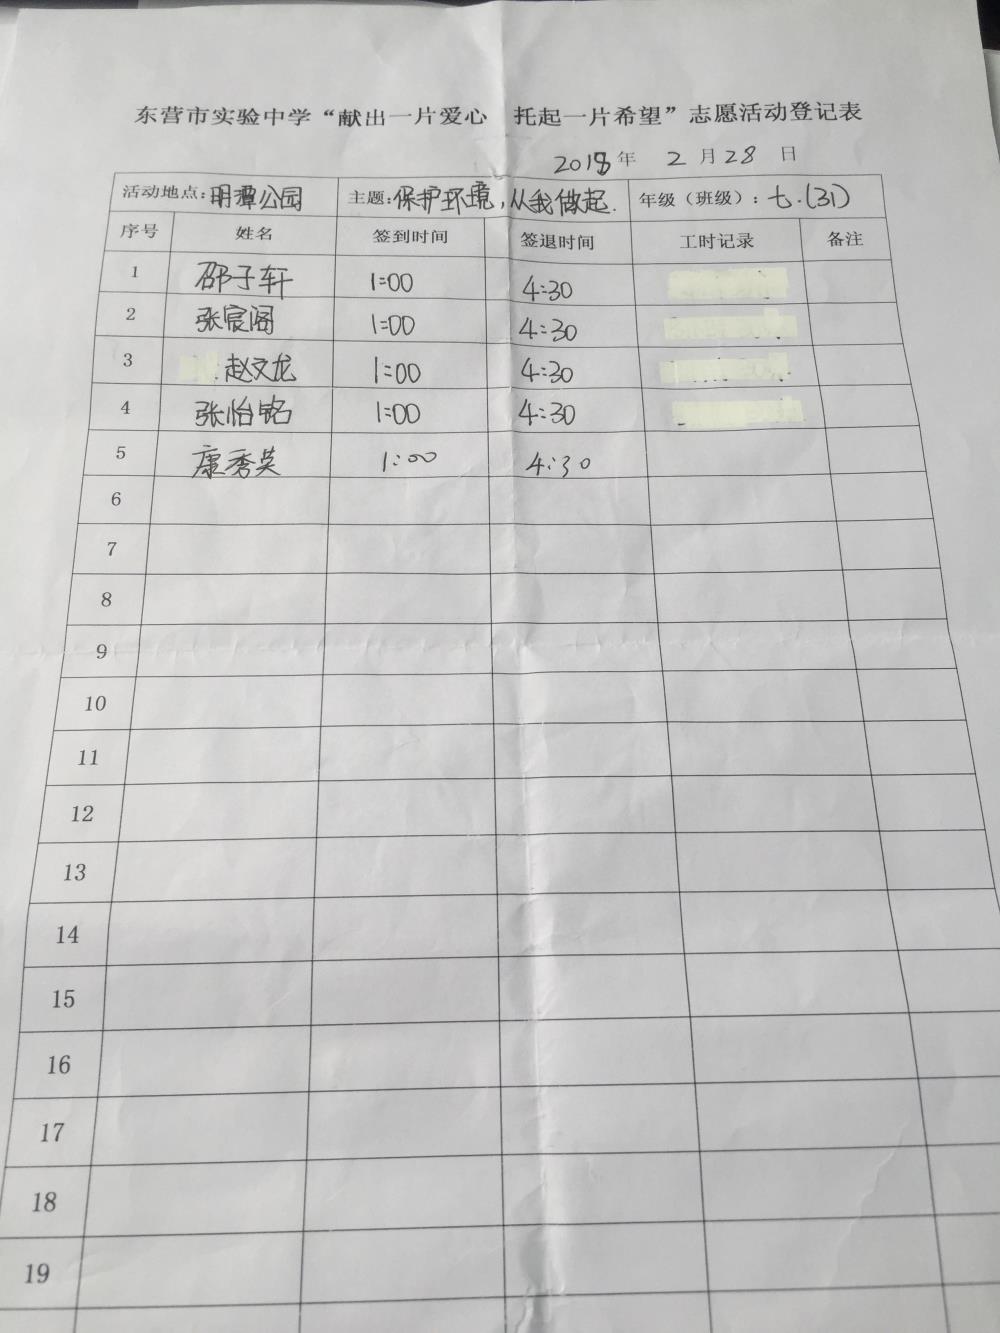 东营市实验中学“献出一片爱心 托起一片希望”志愿活动登记表
2018 年 2 月 28 日
活动地点：明潭公园 主题：保护环境，从我做起. 年级（班级）：七.(31)
序号 姓名 签到时间 签退时间 工时记录 备注
1 邵子轩 1:00 4:30
2 张宸阁 1:00 4:30
3 赵文龙 1:00 4:30
4 张怡铭 1:00 4:30
5 康秀英 1:00 4:30
6
7
8
9
10
11
12
13
14
15
16
17
18
19